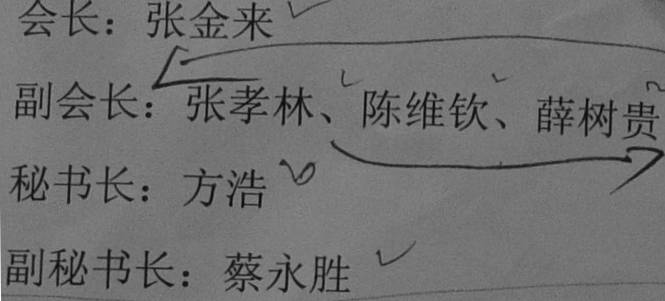 会长：张金来
副会长：张孝林、陈维钦、薛树贵
秘书长：方浩
副秘书长：蔡永胜